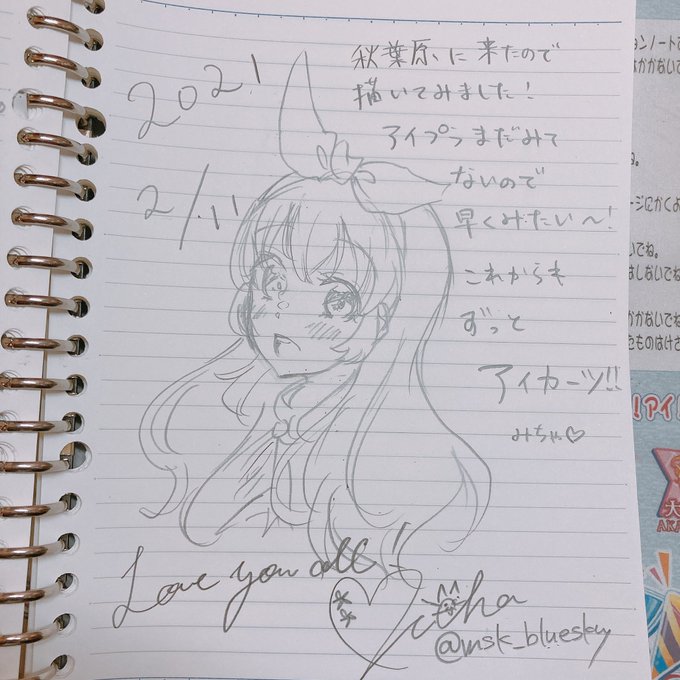 2021
2/11
秋葉原に来たので
描いてみました!
アイプラまだみて
ないので
早くみたい〜!
これからも
ずっと
アイカーツ!!
みちゃ♡
Love you all!
@msk_bluesky
ョンノートで
はかかないで
ね。
ージにかくよ
いでね。
はしないでね
かかないでね
たものはけさ
!アイ
大
AKA